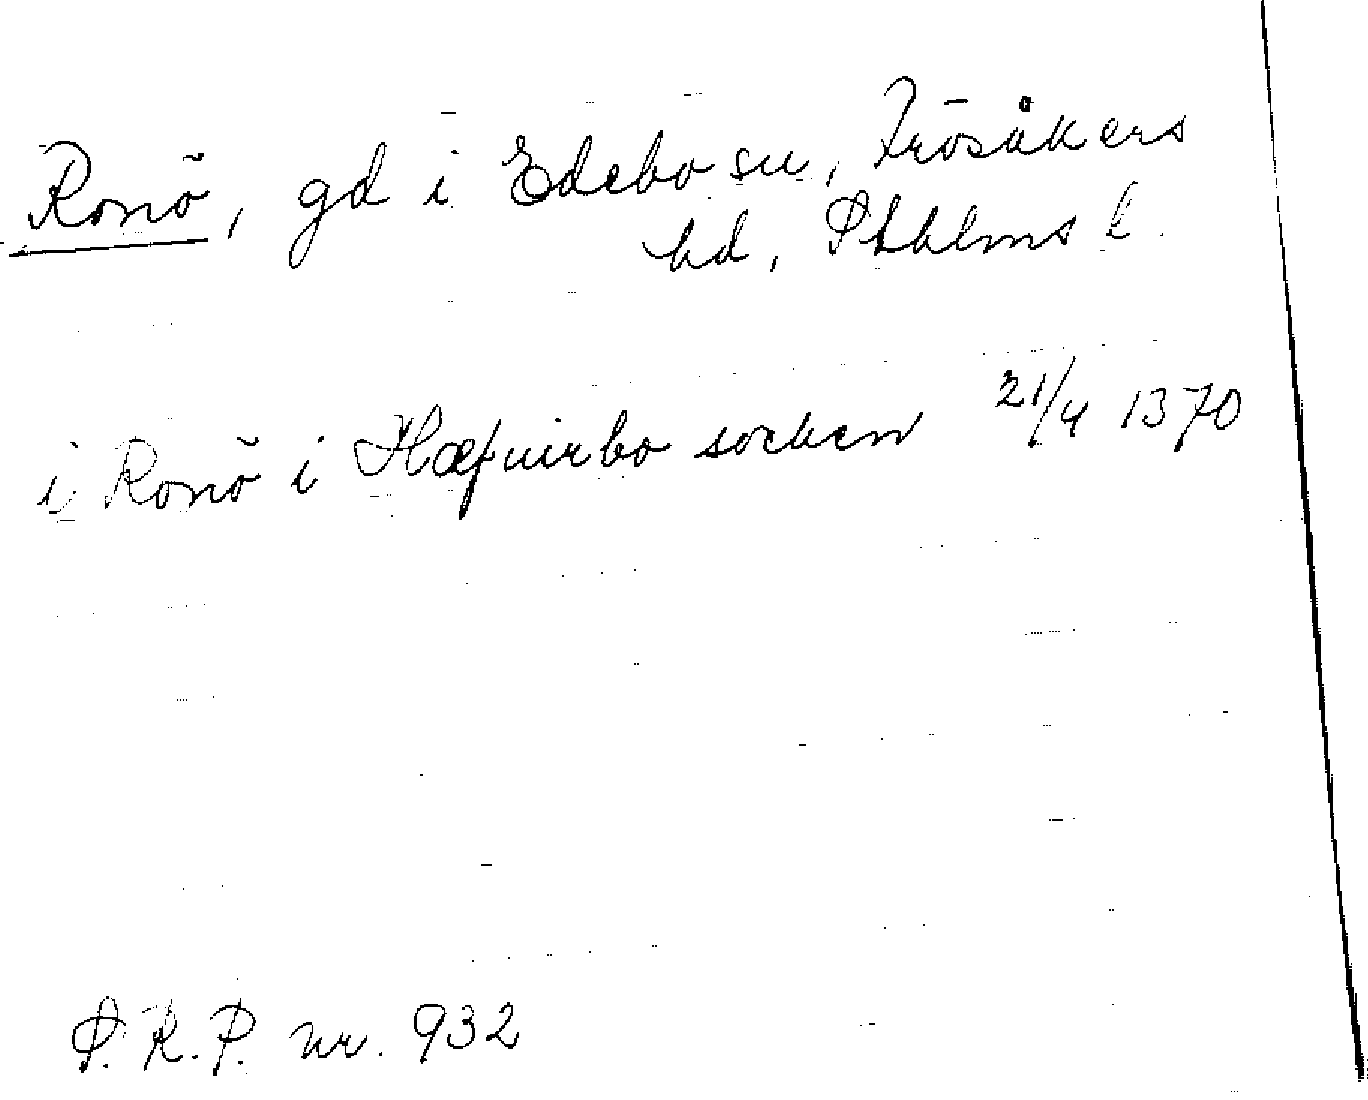 Ronö, gd i Edebo sn, Frösåkers
hd, Sthlms l.
i Ronö i Hæfuirbo socken 21/4 1370
S.R.P. nr. 932